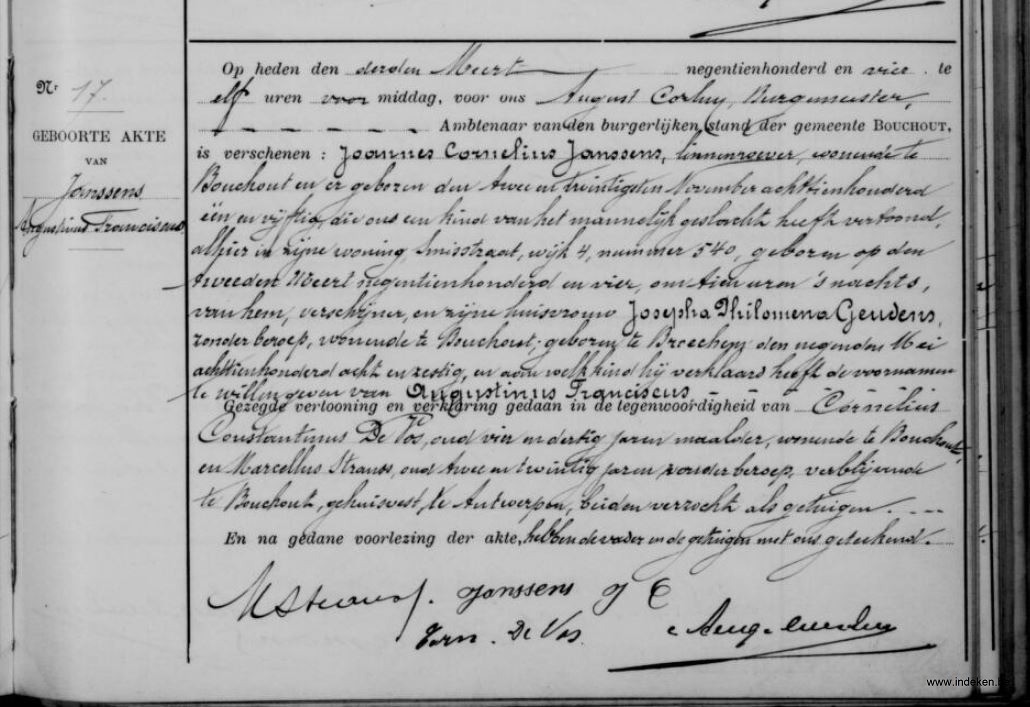 Nr 17.
GEBOORTE AKTE
VAN
Janssens
Augustinus Franciscus
Op heden den derden Meert negentienhonderd en vier te
elf uren voor middag, voor ons August Burgemeester,
Ambtenaar van den burgerlijken stand der gemeente BOUCHOUT,
is verschenen : Joannes Cornelius Janssens, linnenwever, wonende te
Bouchout en er geboren den twee en twintigsten November achttienhonderd
één en vijftig, die ons een kind van het mannelijk geslacht heeft vertoond,
alhier in zijne woning, Smisstraat, wijk 4, nummer 540, geboren op den
tweeden Meert negentienhonderd en vier, om tien uren 's nachts,
van hem, verschijner, en zijne huisvrouw Josepha Philomena Geudens,
zonder beroep, wonende te Bouchout, geboren te Broechem den negenden Mei
achttienhonderd acht en zestig, en aan welk kind hij verklaard heeft de voornamen
te willen geven van Augustinus Franciscus
Gezegde vertooning en verklaring gedaan in de tegenwoordigheid van Cornelius
Constantinus De Vos, oud vier en dertig jaren maalder, wonende te Bouchout,
en Marcellus Strauss, oud twee en twintig jaren, zonder beroep, verblijvende
te Bouchout, gehuisvest te Antwerpen, beiden verzocht als getuigen.
En na gedane voorlezing der akte, hebben de vader en de getuigen met ons geteekend.
M Strauss. Janssens J C
Corn. De Vos
www.indeken.